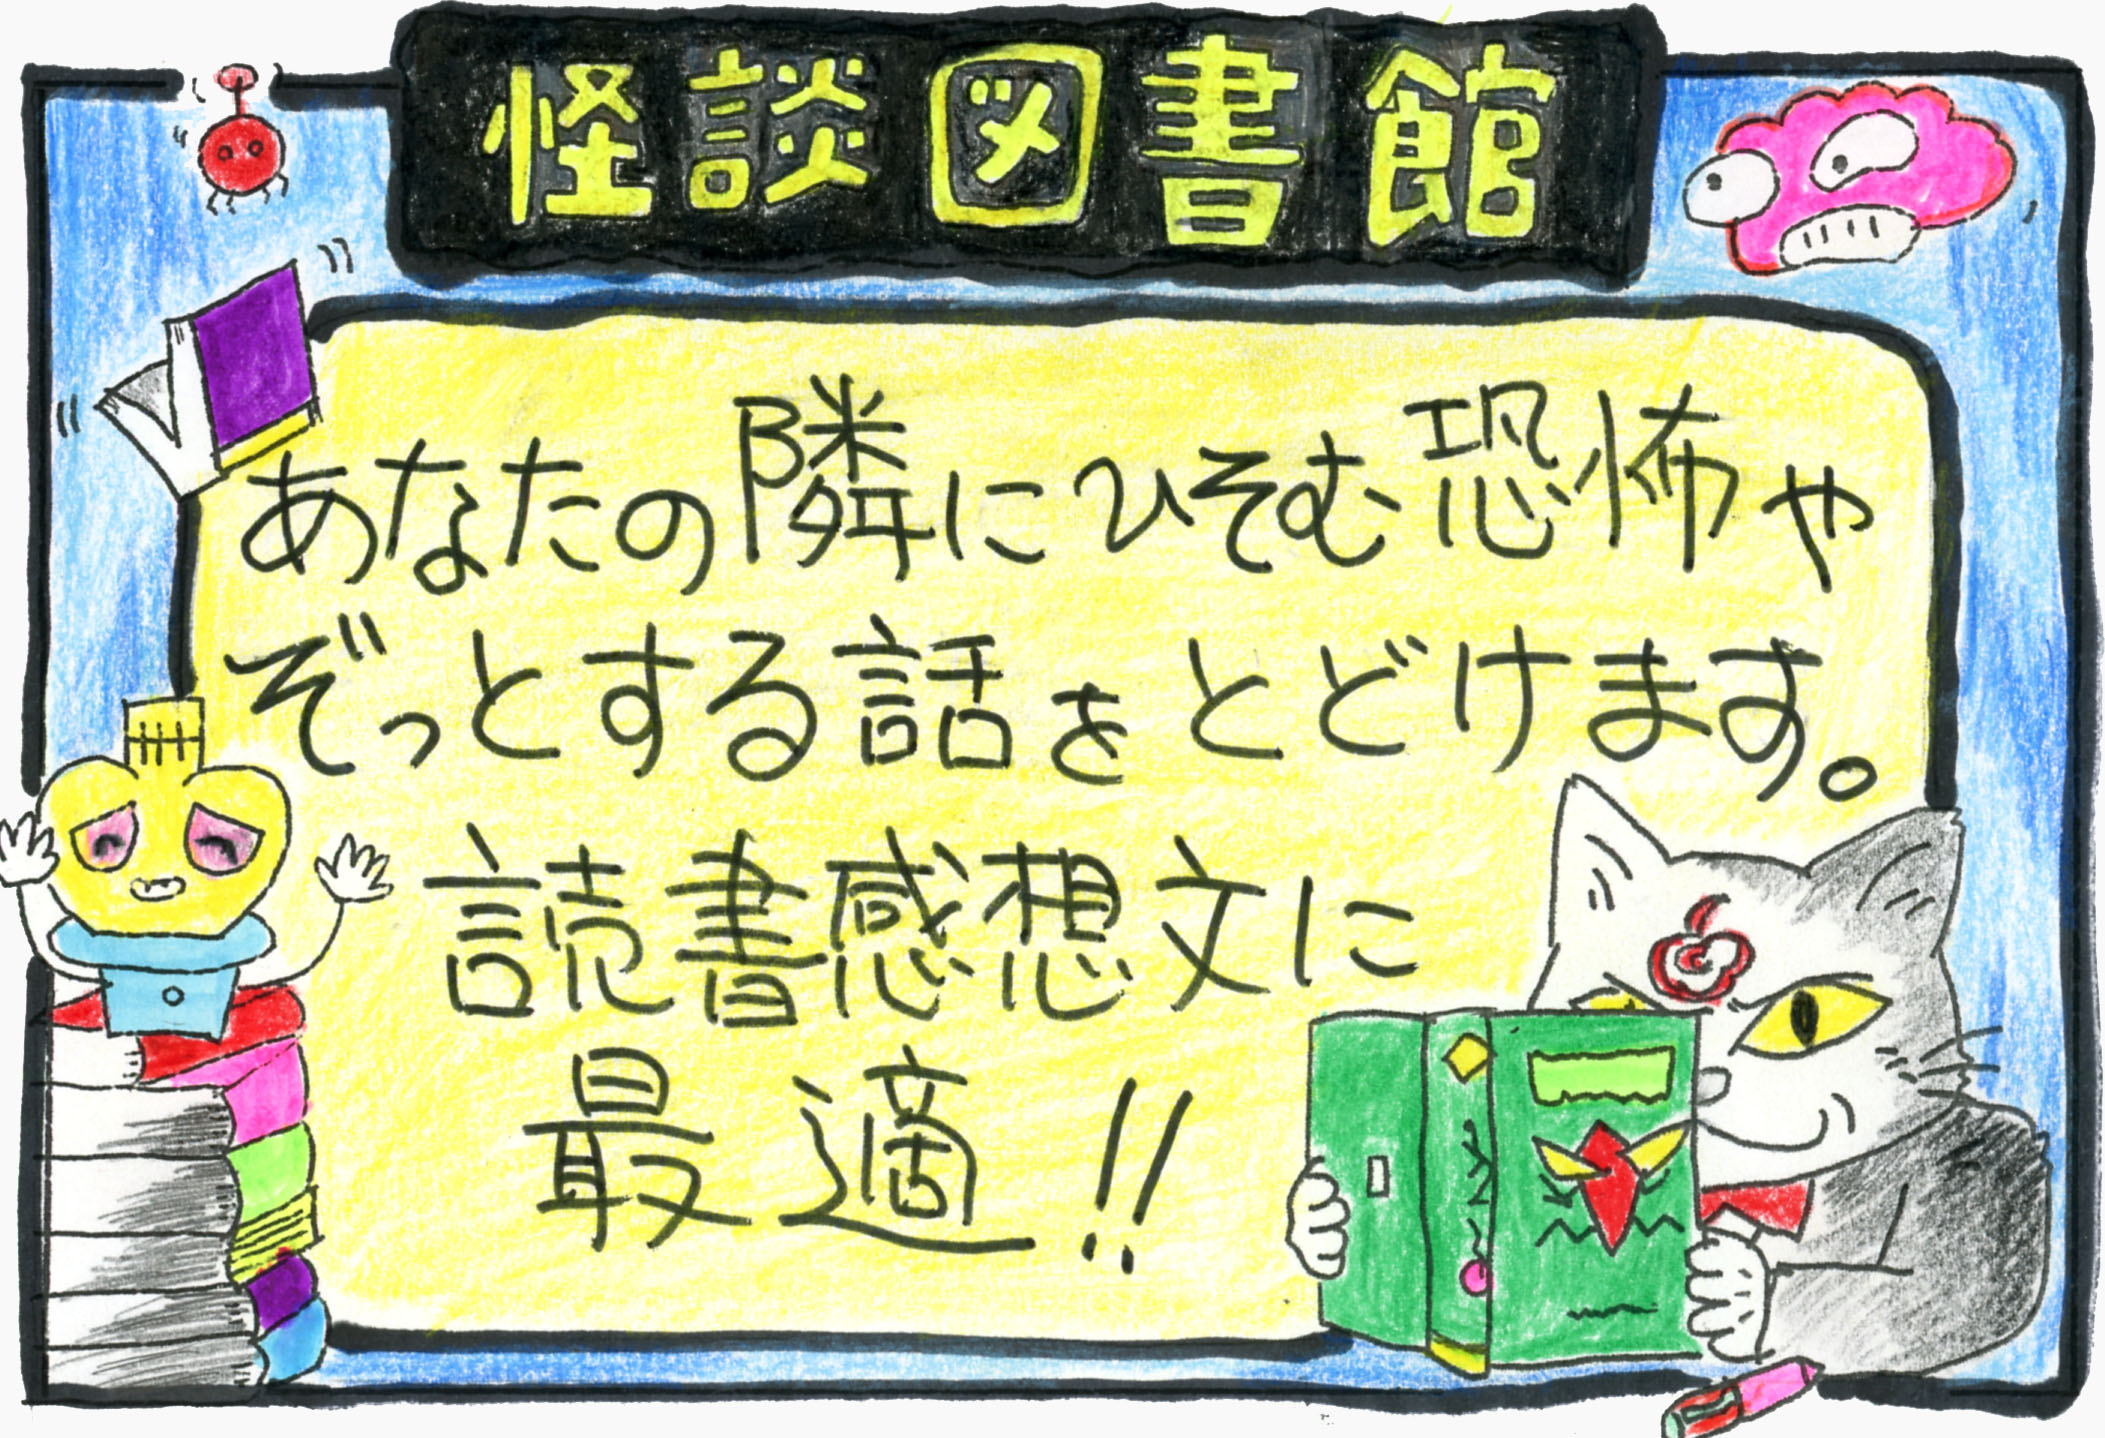 怪談図書館
あなたの隣にひそむ恐怖や
ぞっとする話をとどけます。
読書感想文に
最適!!